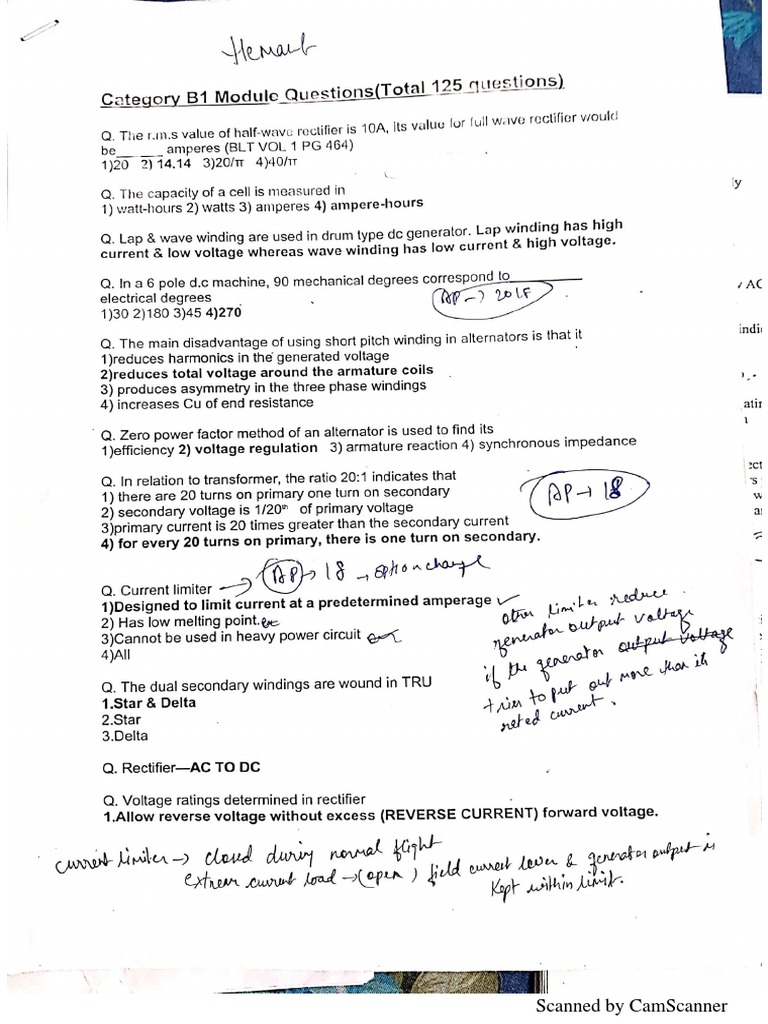 Hemant
Category B1 Module Questions(Total 125 questions)
Q. The r.m.s value of half-wave rectifier is 10A, its value for full wave rectifier would
be______ amperes (BLT VOL 1 PG 464)
1)20 2) 14.14 3)20/π 4)40/π
Q. The capacity of a cell is measured in
1) watt-hours 2) watts 3) amperes 4) ampere-hours
Q. Lap & wave winding are used in drum type dc generator. Lap winding has high
current & low voltage whereas wave winding has low current & high voltage.
Q. In a 6 pole d.c machine, 90 mechanical degrees correspond to_________
electrical degrees
AP → 2018
1)30 2)180 3)45 4)270
Q. The main disadvantage of using short pitch winding in alternators is that it
1)reduces harmonics in the generated voltage
2)reduces total voltage around the armature coils
3) produces asymmetry in the three phase windings
4) increases Cu of end resistance
Q. Zero power factor method of an alternator is used to find its
1)efficiency 2) voltage regulation 3) armature reaction 4) synchronous impedance
Q. In relation to transformer, the ratio 20:1 indicates that
1) there are 20 turns on primary one turn on secondary
AP → 18
2) secondary voltage is 1/20th of primary voltage
3)primary current is 20 times greater than the secondary current
4) for every 20 turns on primary, there is one turn on secondary.
Q. Current limiter → AP → 18 → option change
1)Designed to limit current at a predetermined amperage ✓
2) Has low melting point.
3)Cannot be used in heavy power circuit
4)All
other limiter reduce
generator output voltage
if the generator output voltage
tries to put out more than its
rated current.
Q. The dual secondary windings are wound in TRU
1.Star & Delta
2.Star
3.Delta
Q. Rectifier—AC TO DC
Q. Voltage ratings determined in rectifier
1.Allow reverse voltage without excess (REVERSE CURRENT) forward voltage.
current limiter → closed during normal flight
current load → (open) field current lower & generator output is
Kept within limit.
Scanned by CamScanner